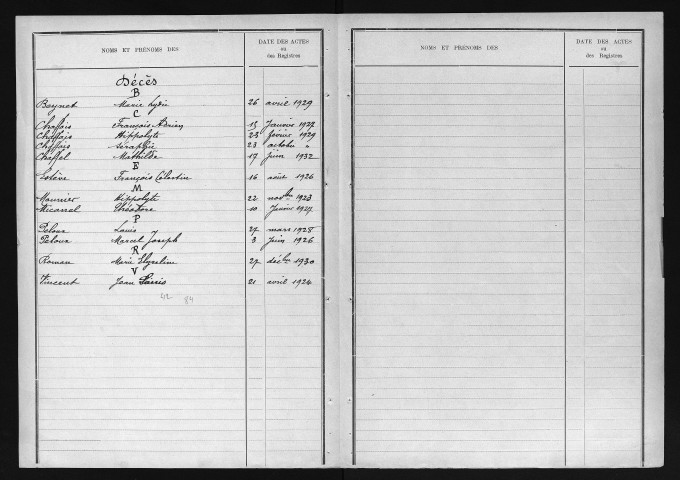 NOMS ET PRÉNOMS DES
DATE DES ACTES
ou
des Registres
Décès
B
Beynet Marie Lydie 26 avril 1929
C
Chaffois François Adrien 15 Janvier
Chaffois Hippolyte 23 février 1929
Chaffois Séraphie 23 octobre "
Chaffel Mathilde 17 juin 1932
E
Estève François Célestin 16 août 1926
M
Mounier Hippolyte 22 novbre 1923
Théodore 10 Janvier
P
Peloux Louis 27 mars 1928
Peloux Marcel Joseph 3 Juin 1926
R
Roman Marie 27 décbre 1930
V
Vincent Jean 21 avril 1924
42 84
NOMS ET PRÉNOMS DES
DATE DES ACTES
ou
des Registres